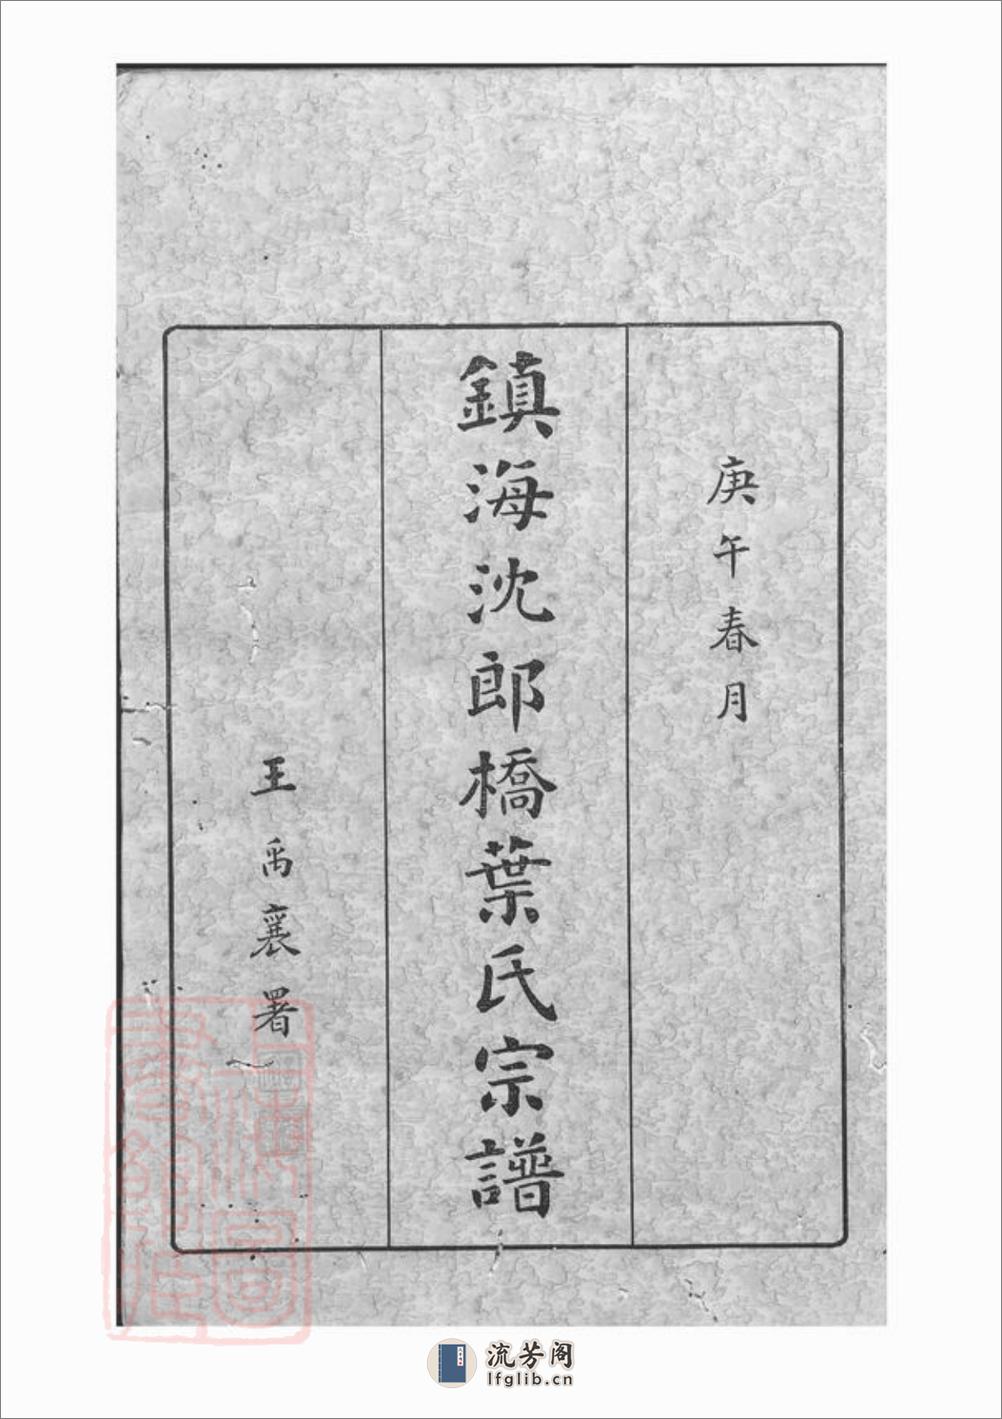 庚午春月
鎮海沈郎橋葉氏宗譜
王禹襄署
流芳阁
lfglib.cn